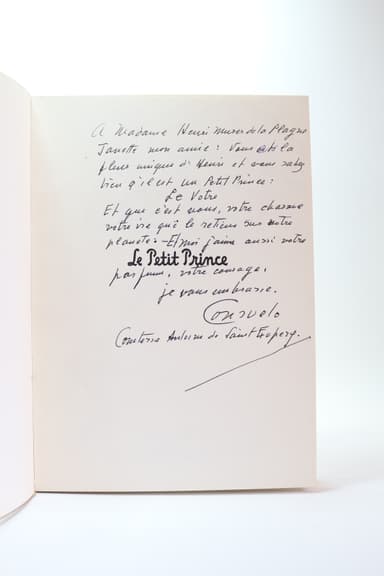 A Madame Henri Muser de la Plagne
Janette mon amie : Vous êtes la
fleur unique d'Henri et vous savez
bien qu'il est un Petit Prince :
Le Votre
Et que c'est vous, votre charme
votre vie qui le retiens sur notre
planete : Et moi j'aime aussi votre
Le Petit Prince
parfum, votre courage,
je vous embrasse.
Consuelo
Comtesse Antoine de Saint Exupery.